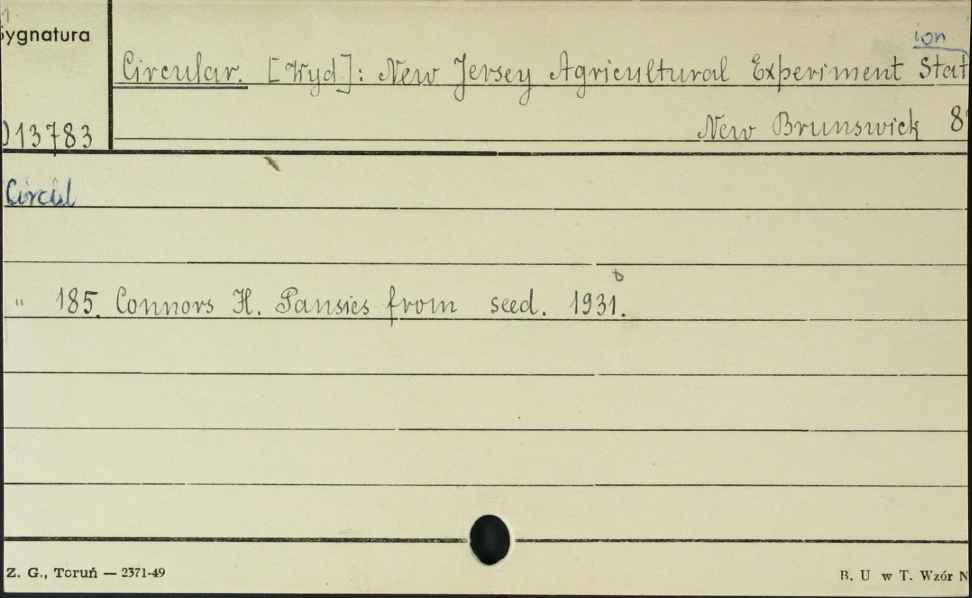 Sygnatura
ion
Circular. [Wyd]: New Jersey Agricultural Experiment Stat
New Brunswick 8°
013783
Circul
" 185. Connors H. Pansies from seed. 1931.
Z. G., Toruń — 2371-49
B. U w T. Wzór N